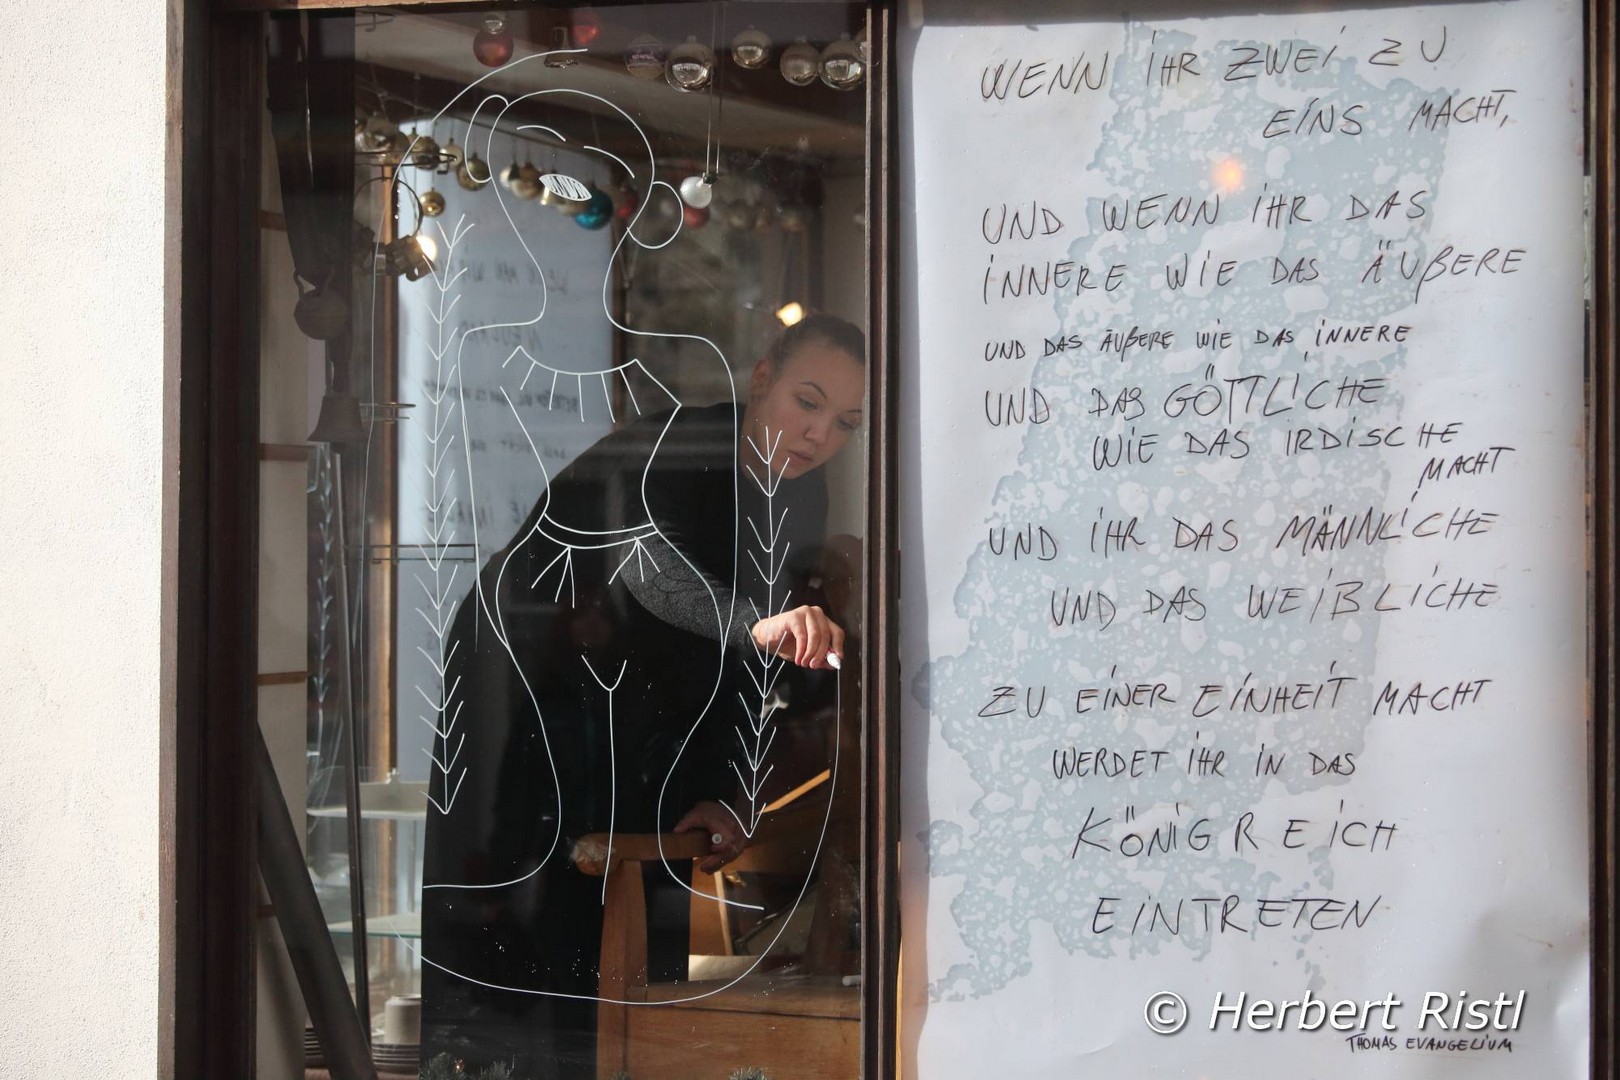 WENN IHR ZWEI ZU
EINS MACHT,
UND WENN IHR DAS
INNERE WIE DAS ÄUßERE
UND DAS ÄUßERE WIE DAS INNERE
UND DAS GÖTTLICHE
WIE DAS IRDISCHE
MACHT
UND IHR DAS MÄNNLICHE
UND DAS WEIBLICHE
ZU EINER EINHEIT MACHT
WERDET IHR IN DAS
KÖNIGREICH
EINTRETEN
© Herbert Ristl
THOMAS EVANGELIUM